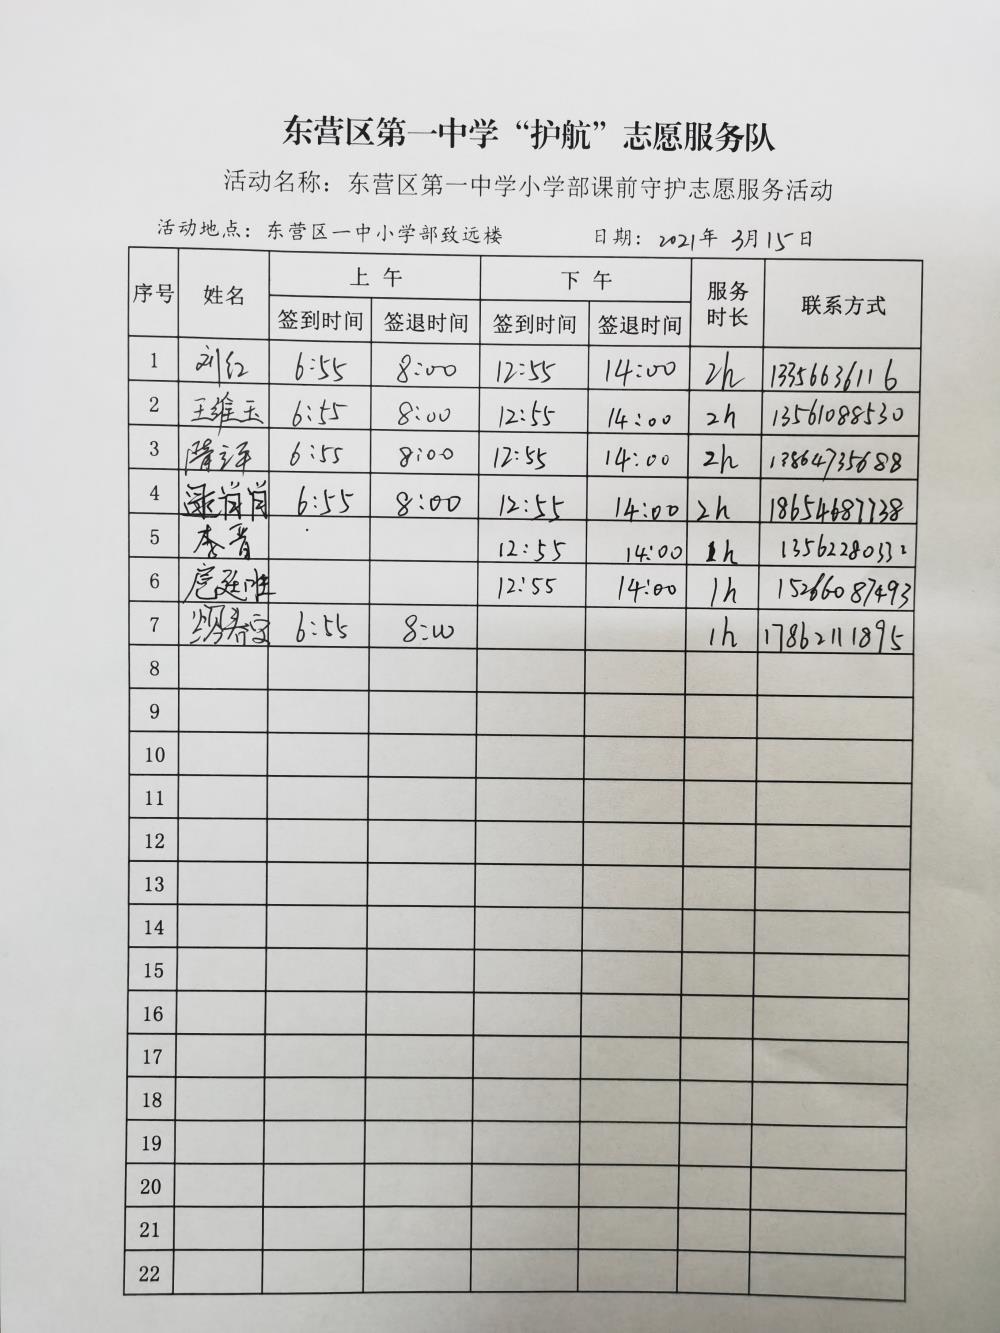 东营区第一中学“护航”志愿服务队
活动名称：东营区第一中学小学部课前守护志愿服务活动
活动地点：东营区一中小学部致远楼 日期：2021年 3月15日
序号 姓名 上 午 下 午 服务时长 联系方式
签到时间 签退时间 签到时间 签退时间
1 刘红 6:55 8:00 12:55 14:00 2h 13356636116
2 王维玉 6:55 8:00 12:55 14:00 2h 13561088530
3 隋萍 6:55 8:00 12:55 14:00 2h 13864735688
4 肖肖 6:55 8:00 12:55 14:00 2h 18654687738
5 李晋 12:55 14:00 1h
6 12:55 14:00 1h 15266087493
7 6:55 8:00 1h 17862111895
8
9
10
11
12
13
14
15
16
17
18
19
20
21
22